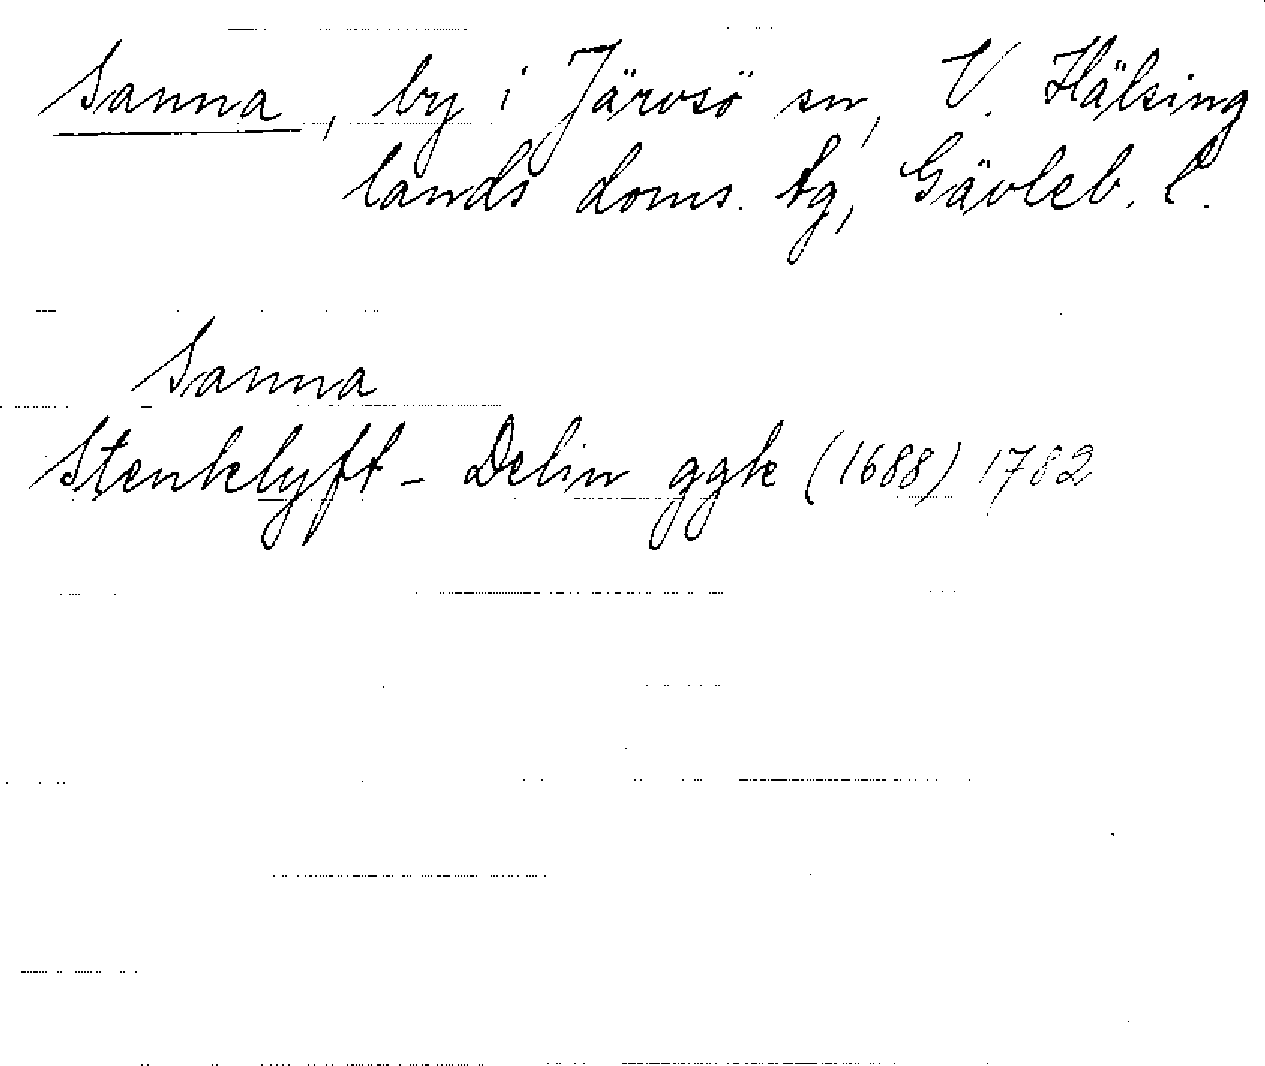 Sanna, by i Järvsö sn, V. Hälsing
lands doms. tg, Gävleb. l.
Sanna
Stenklyft - Delin ggk (1688) 1782